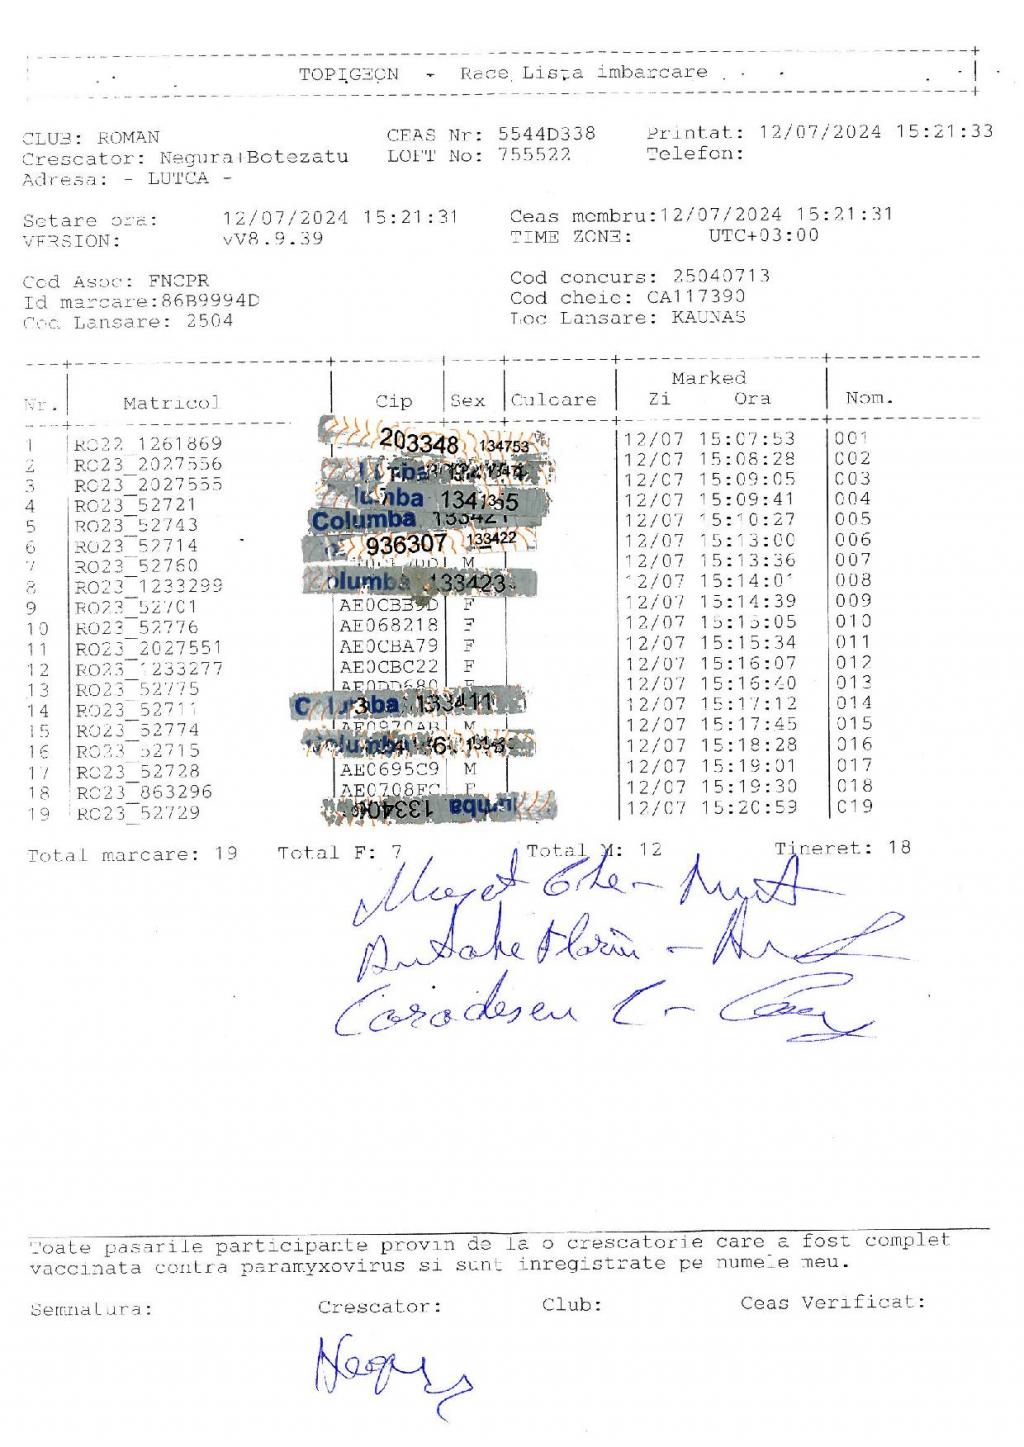 TOPIGEON - Race Lista imbarcare
CLUB: ROMAN CEAS Nr: 5544D338 Printat: 12/07/2024 15:21:33
Crescator: Negura+Botezatu LOFT No: 755522 Telefon:
Adresa: - LUTCA -
Setare ora: 12/07/2024 15:21:31 Ceas membru:12/07/2024 15:21:31
VERSION: vV8.9.39 TIME ZONE: UTC+03:00
Cod Asoc: FNCPR Cod concurs: 25040713
Id marcare:86B9994D Cod cheie: CA117390
Cod Lansare: 2504 Loc Lansare: KAUNAS
Marked
Nr. Matricol Cip Sex Culoare Zi Ora Nom.
1 RO22_1261869 203348 134753 12/07 15:07:53 001
2 RO23_2027556 12/07 15:08:28 002
3 RO23_2027555 12/07 15:09:05 003
4 RO23_52721 12/07 15:09:41 004
5 RO23_52743 Columba 133421 12/07 15:10:27 005
6 RO23_52714 936307 133422 12/07 15:13:00 006
7 RO23_52760 M 12/07 15:13:36 007
8 RO23_1233299 Columba 133423 12/07 15:14:01 008
9 RO23_52701 AE0CBB9D F 12/07 15:14:39 009
10 RO23_52776 AE068218 F 12/07 15:15:05 010
11 RO23_2027551 AE0CBA79 F 12/07 15:15:34 011
12 RO23_1233277 AE0CBC22 F 12/07 15:16:07 012
13 RO23_52775 AE0DD680 F 12/07 15:16:40 013
14 RO23_52711 133411 12/07 15:17:12 014
15 RO23_52774 AE0970AB M 12/07 15:17:45 015
16 RO23_52715 12/07 15:18:28 016
17 RO23_52728 AE0695C9 M 12/07 15:19:01 017
18 RO23_863296 AE0708FC F 12/07 15:19:30 018
19 RO23_52729 12/07 15:20:59 019
Total marcare: 19 Total F: 7 Total M: 12 Tineret: 18
Florin
Toate pasarile participante provin de la o crescatorie care a fost complet
vaccinata contra paramyxovirus si sunt inregistrate pe numele meu.
Semnatura: Crescator: Club: Ceas Verificat: